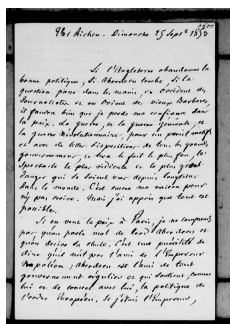 Val Richer - Dimanche 25 Sept 1853
Si l'Angleterre abandonne la
bonne politique, si Aberdeen tombe, si la
question passe dans les mains, en Occident des
Journalistes et en Orient des vieux Barbares,
il faudra bien que je perde ma confiance dans
la paix. La guerre, et la guerre générale, et
la guerre révolutionnaire, pour un pareil motif
et avec de telles dispositions de tous les grands
gouvernements, ce sera le fait le plus fou, le
spectacle le plus ridicule et le plus grand
danger qui se soient vus depuis longtemps
dans le monde. C'est encore ma raison pour
n'y pas croire. Mais j'ai appris que tout est
possible.
Si on veut la paix à Paris, je ne comprends
pas qu'on parle mal de lord Aberdeen et
qu'on désire sa chute. C'est une puérilité de
dire qu'il n'est pas l'ami de l'Empereur
Napoléon ; Aberdeen est l'ami de tout
gouvernement régulier et qui soutient, comme
lui et de concert avec lui, la politique de
l'ordre Européen. Si j'étais l'Empereur,